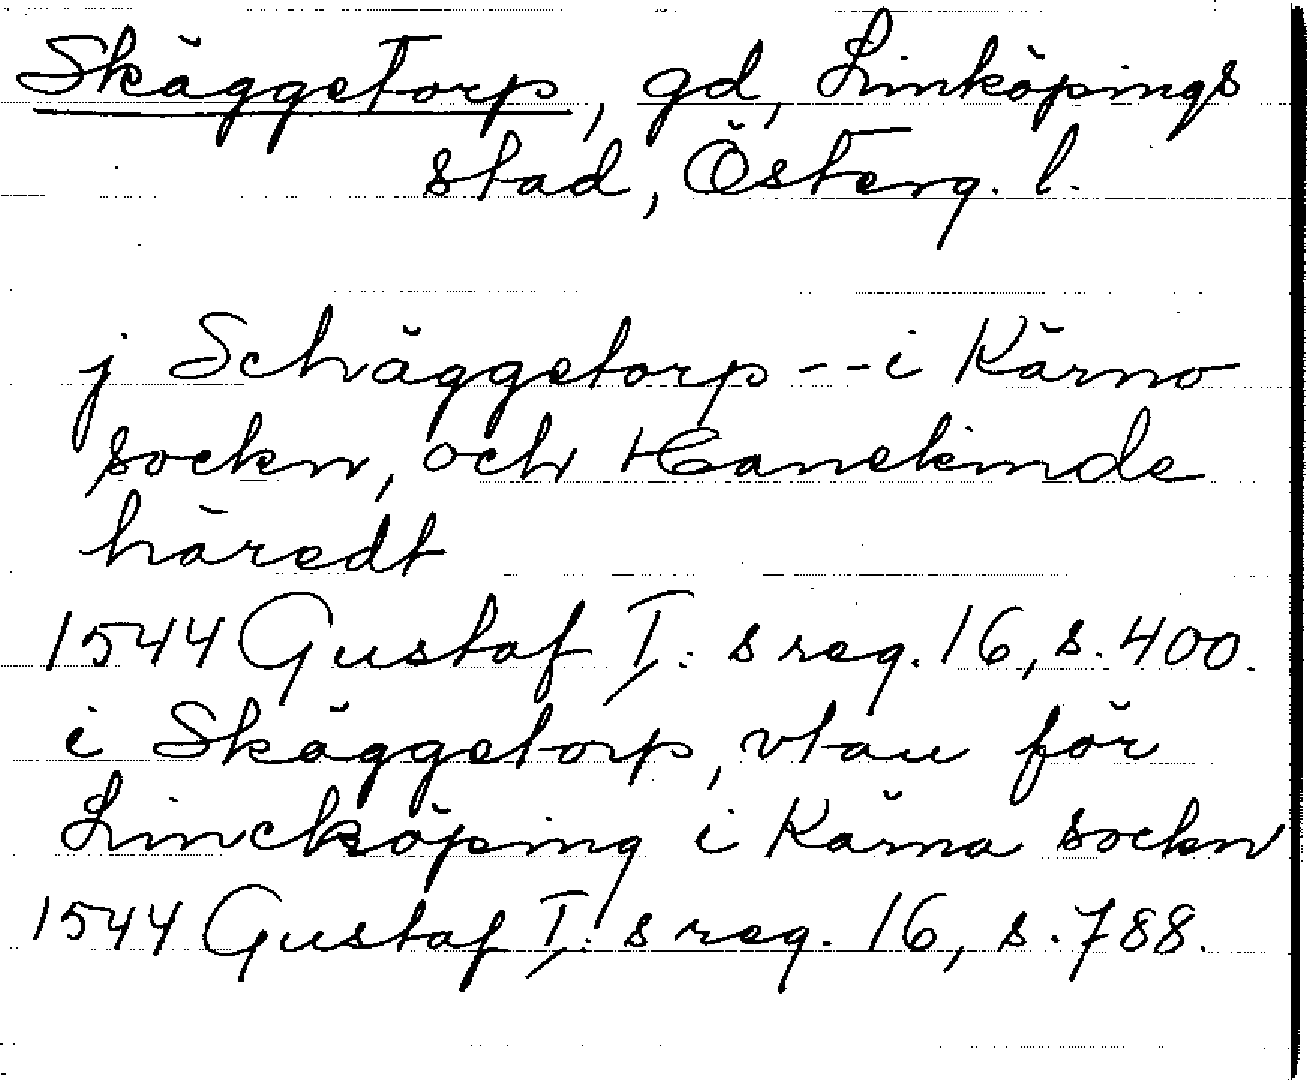 Skäggetorp, gd, Linköpings
stad, Österg. l.
j Schäggetorp -- i Kärno
sockn, och Hanekinde
häredt
1544 Gustaf I: s reg. 16, s. 400.
i Skäggetorp, vtau för
Lincköping i Kärna sockn
1544 Gustaf I: s reg. 16, s. 788.